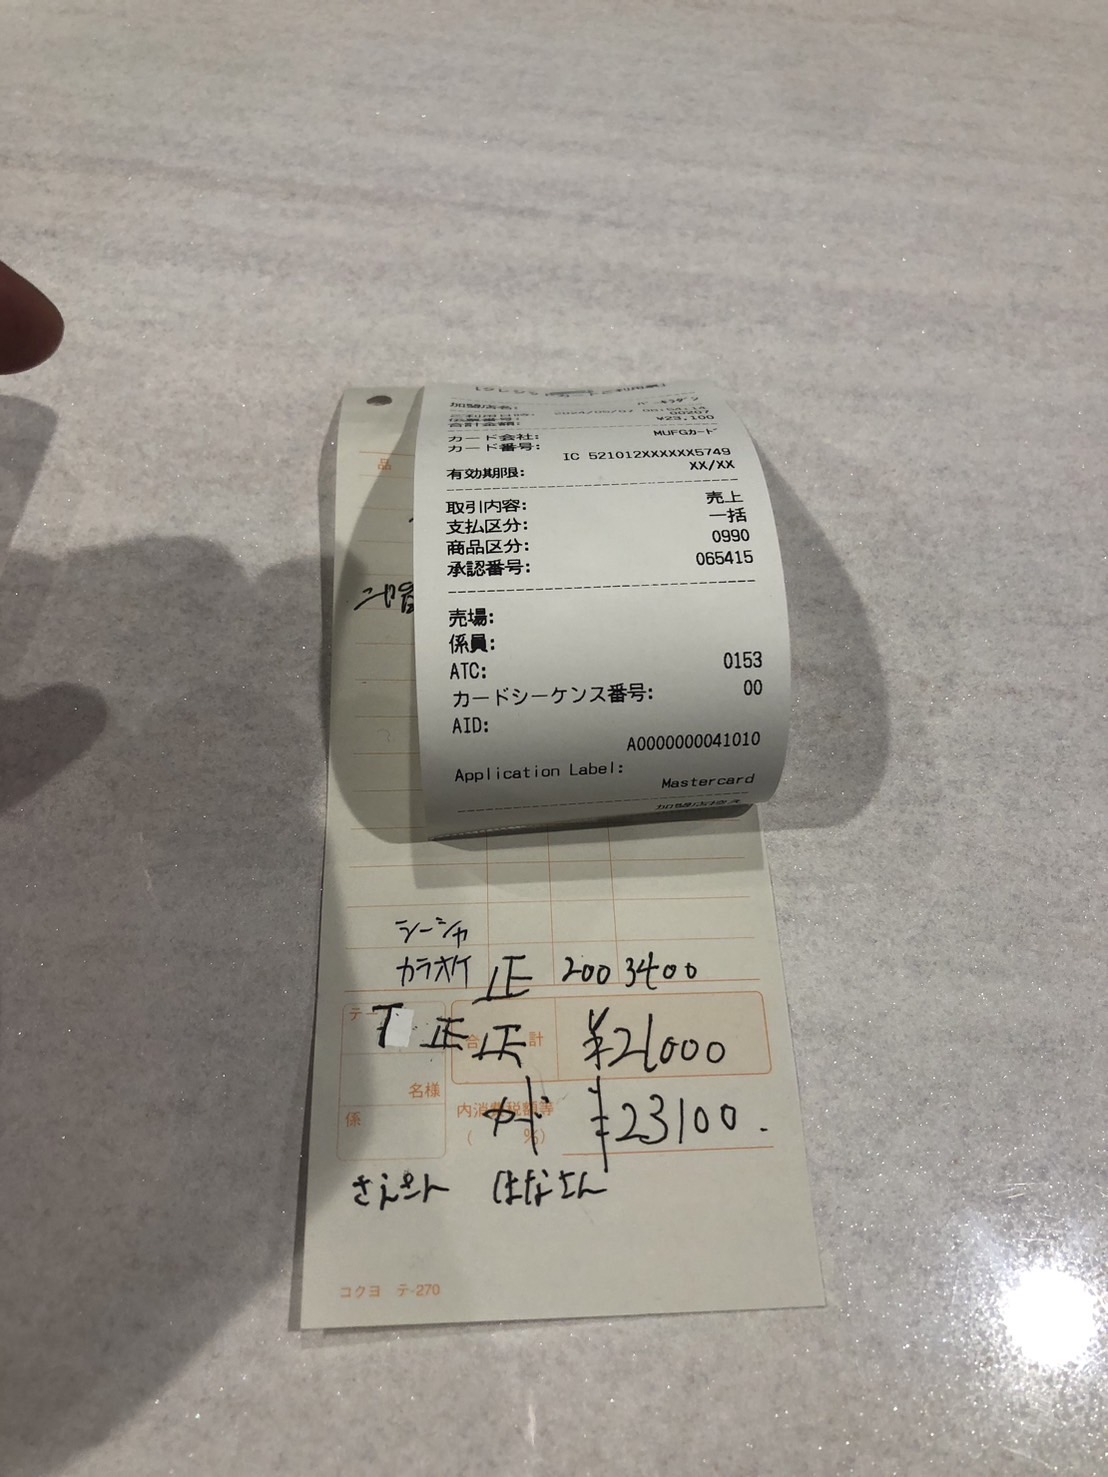 加盟店名:
ご利用日時: 2024/05/07
伝票番号: 00207
合計金額: ¥23,100
カード会社: MUFGカード
カード番号:
IC 521012XXXXXX5749
有効期限: XX/XX
取引内容: 売上
支払区分: 一括
商品区分: 0990
承認番号: 065415
売場:
係員:
ATC: 0153
カードシーケンス番号: 00
AID:
A0000000041010
Application Label:
Mastercard
加盟店控え
品
シーシャ
カラオケ 正 200 3400
テー T 正 正
合 計 ¥21000
名様
係
内消費税額等
( %)
カード ¥23100.
さえさん はなさん
コクヨ テ-270